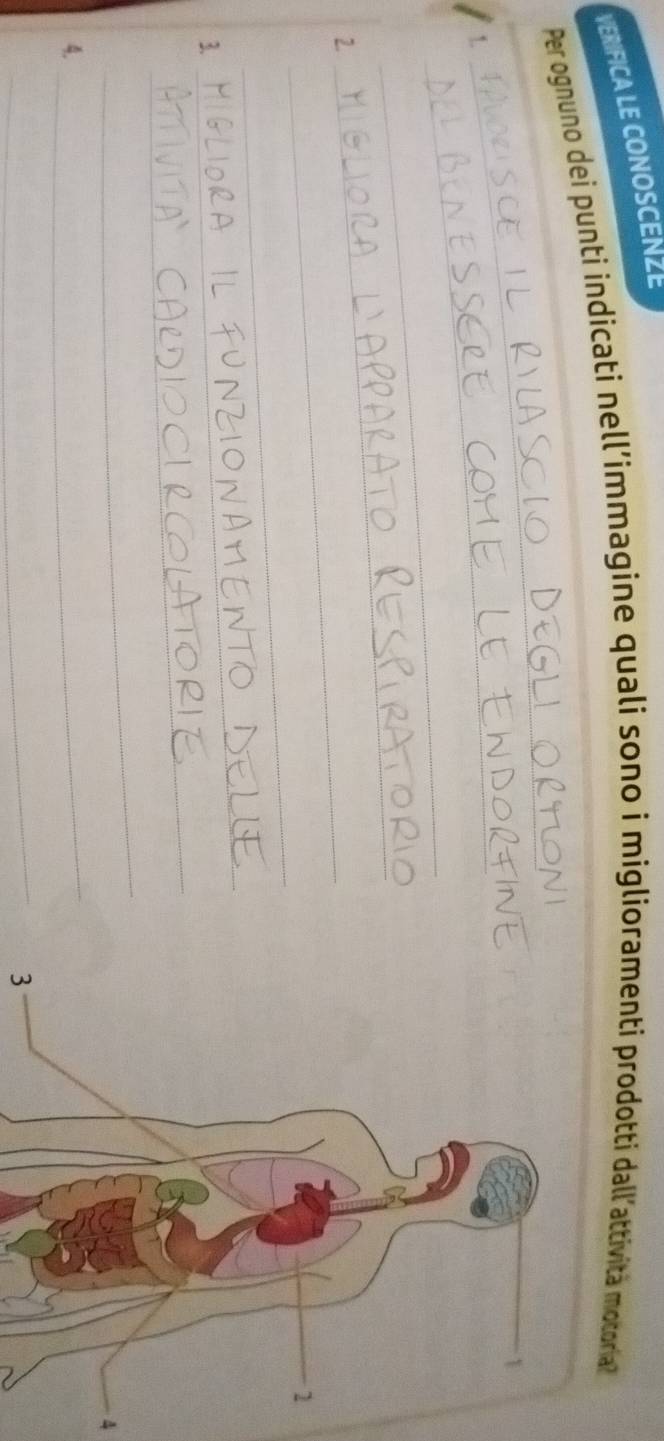 VERIFICA LE CONOSCENZE
Per ognuno dei punti indicati nell'immagine quali sono i miglioramenti prodotti dall'attività motoria?
1. FAVORISCE IL RILASCIO DEGLI ORMONI
DEL BENESSERE COME LE ENDORFINE
2. MIGLIORA L'APPARATO RESPIRATORIO
3. MIGLIORA IL FUNZIONAMENTO DELLE
ATTIVITA' CARDIOCIRCOLATORIE
4.
1
2
3
4